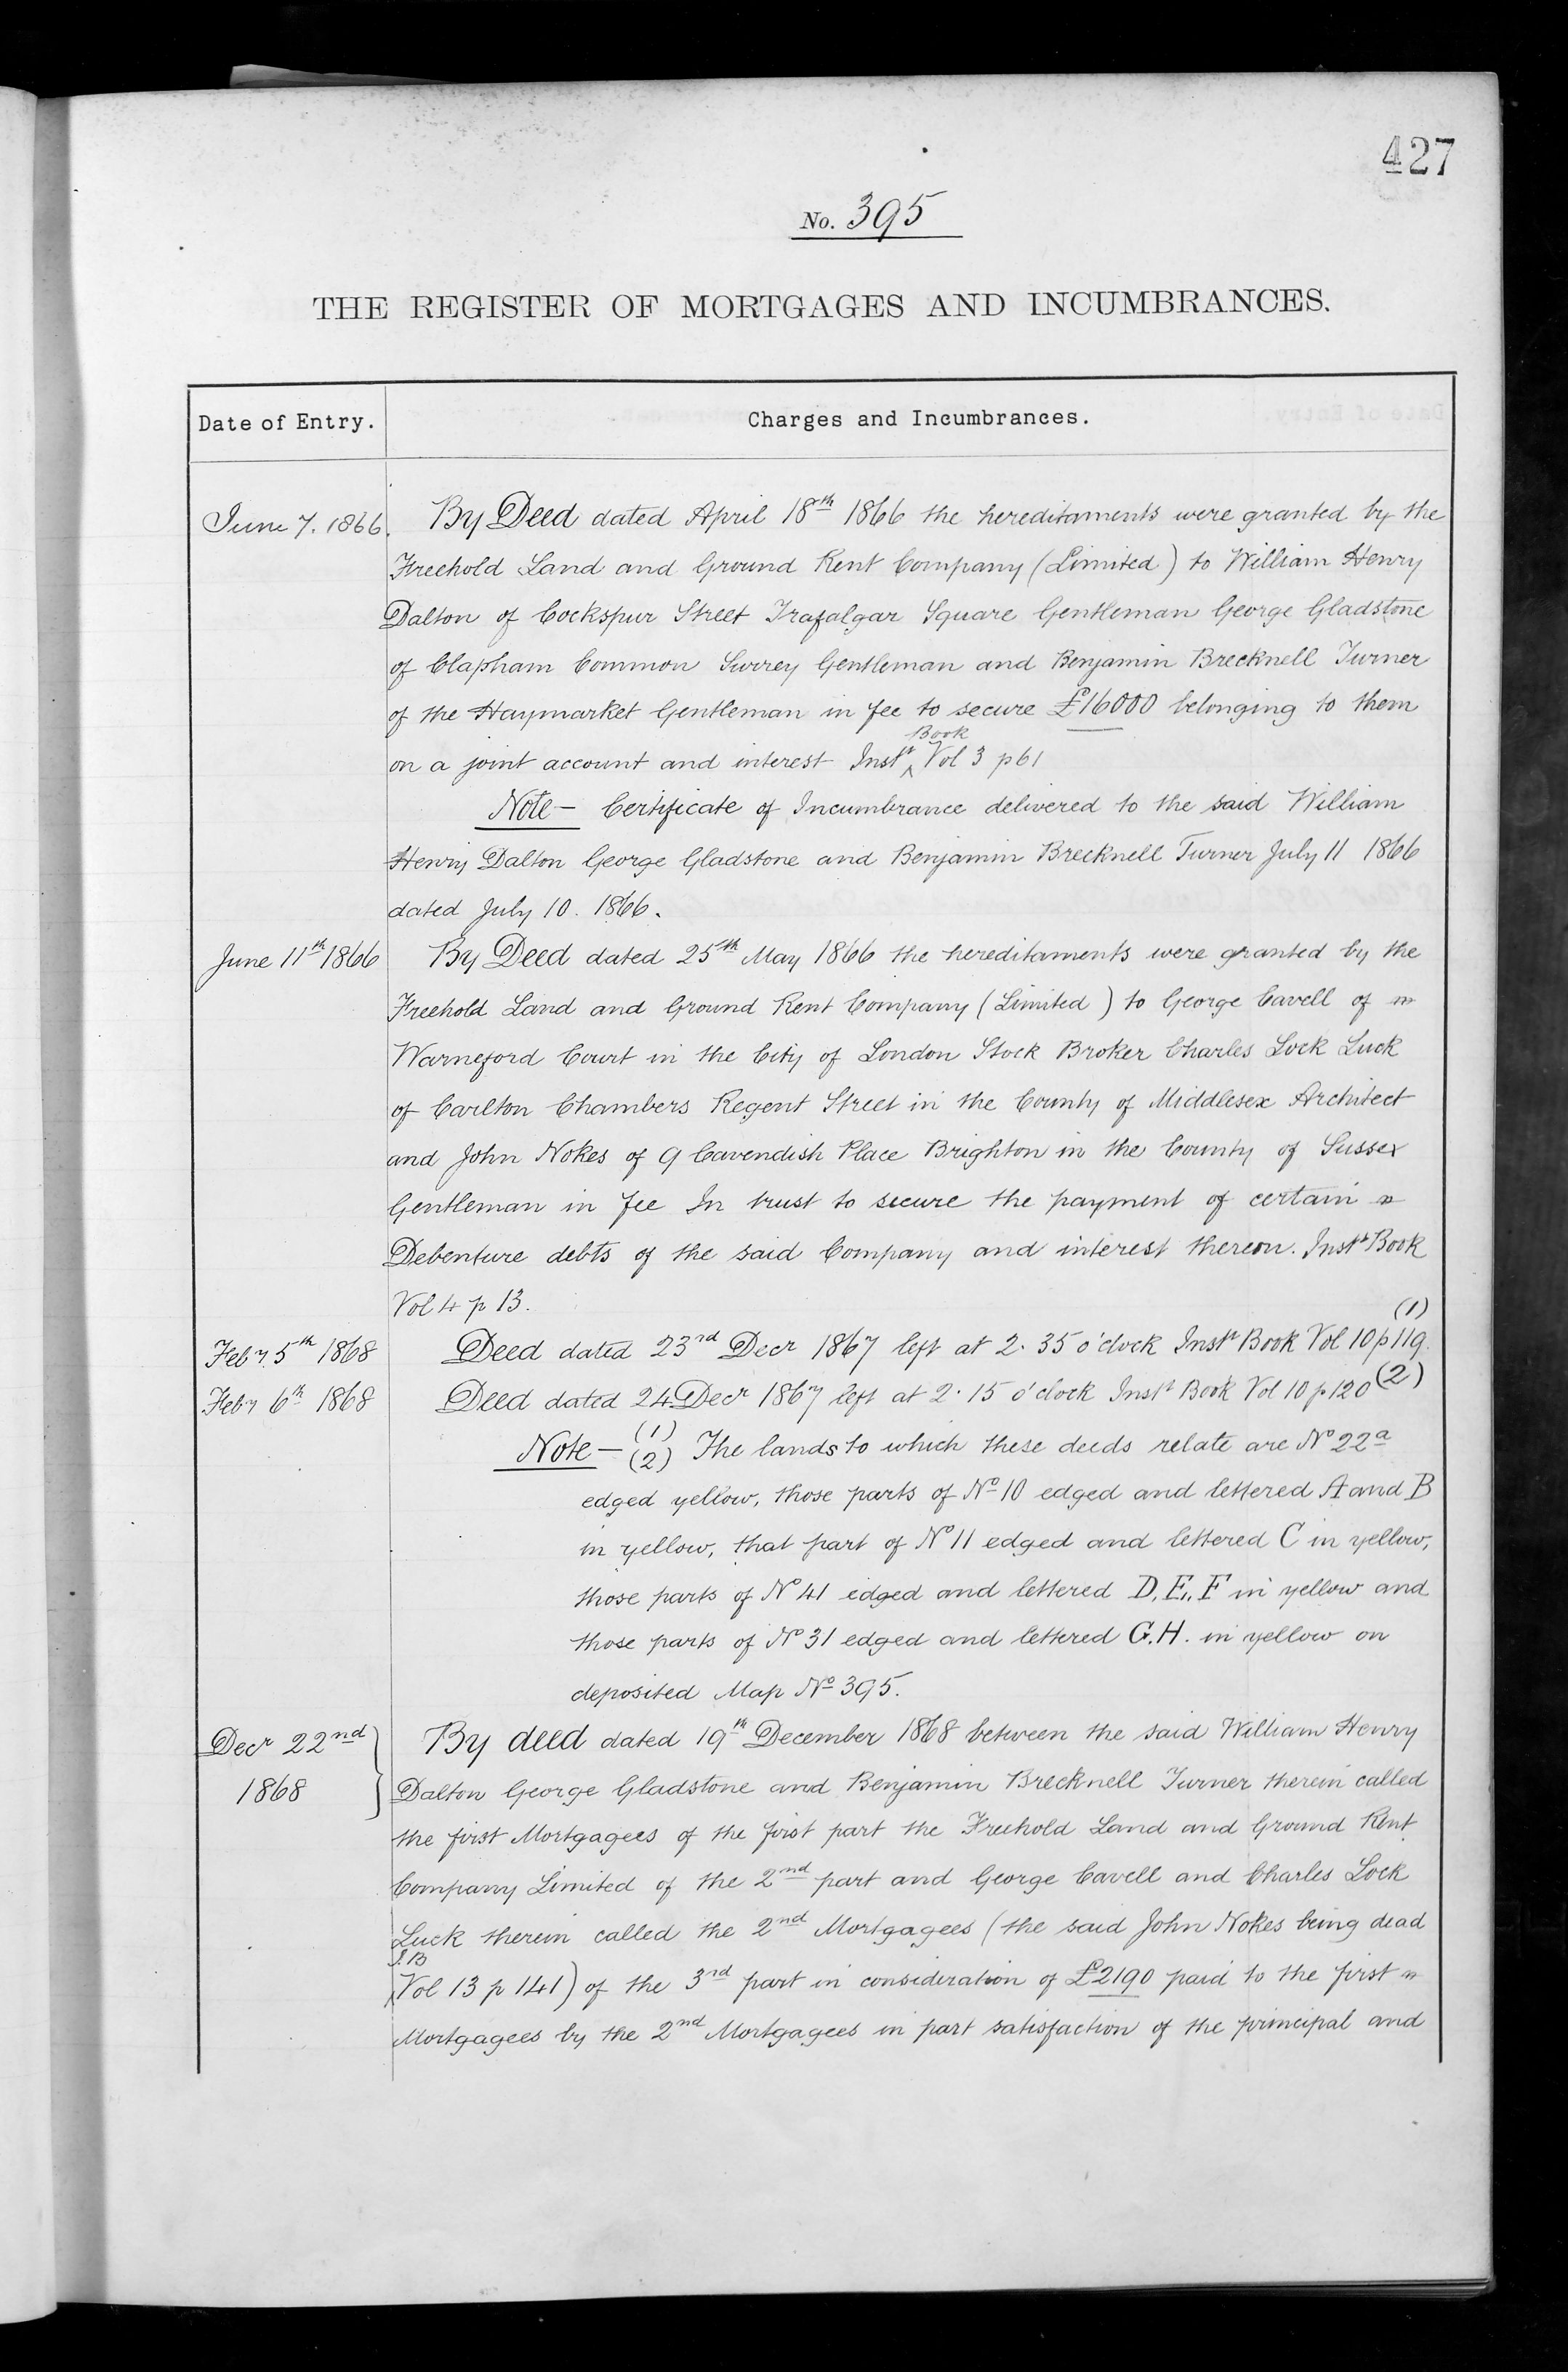 427
No. 395
THE REGISTER OF MORTGAGES AND INCUMBRANCES.
Date of Entry. Charges and Incumbrances.
June 7. 1866. By Deed dated April 18th 1866 the hereditaments were granted by the
Freehold Land and Ground Rent Company (Limited) to William Henry
Dalton of Cockspur Street Trafalgar Square Gentleman George Gladstone
of Clapham Common Surrey Gentleman and Benjamin Brecknell Turner
of the Haymarket Gentleman in fee to secure £16000 belonging to them
on a joint account and interest Instt Book Vol 3 p 61
Note — Certificate of Incumbrance delivered to the said William
Henry Dalton George Gladstone and Benjamin Brecknell Turner July 11 1866
dated July 10. 1866.
June 11th 1866 By Deed dated 25th May 1866 the hereditaments were granted by the
Freehold Land and Ground Rent Company (Limited) to George Cavell of
Warneford Court in the City of London Stock Broker Charles Lock Luck
of Carlton Chambers Regent Street in the County of Middlesex Architect
and John Nokes of 9 Cavendish Place Brighton in the County of Sussex
Gentleman in fee In trust to secure the payment of certain
Debenture debts of the said Company and interest thereon. Instt Book
Vol 4 p 13.
Feby 5th 1868 Deed dated 23rd Decr 1867 left at 2.35 o'clock Instt Book Vol 10 p 119. (1)
Feby 6th 1868 Deed dated 24 Decr 1867 left at 2.15 o'clock Instt Book Vol 10 p 120 (2)
Note — (1) (2) The lands to which these deeds relate are No 22a
edged yellow, those parts of No 10 edged and lettered A and B
in yellow, that part of No 11 edged and lettered C in yellow,
those parts of No 41 edged and lettered D, E, F in yellow and
those parts of No 31 edged and lettered G. H. in yellow on
deposited Map No 395.
Decr 22nd 1868 By deed dated 19th December 1868 between the said William Henry
Dalton George Gladstone and Benjamin Brecknell Turner therein called
the first Mortgagees of the first part the Freehold Land and Ground Rent
Company Limited of the 2nd part and George Cavell and Charles Lock
Luck therein called the 2nd Mortgagees (the said John Nokes being dead
I.B Vol 13 p 141) of the 3rd part in consideration of £2190 paid to the first
Mortgagees by the 2nd Mortgagees in part satisfaction of the principal and